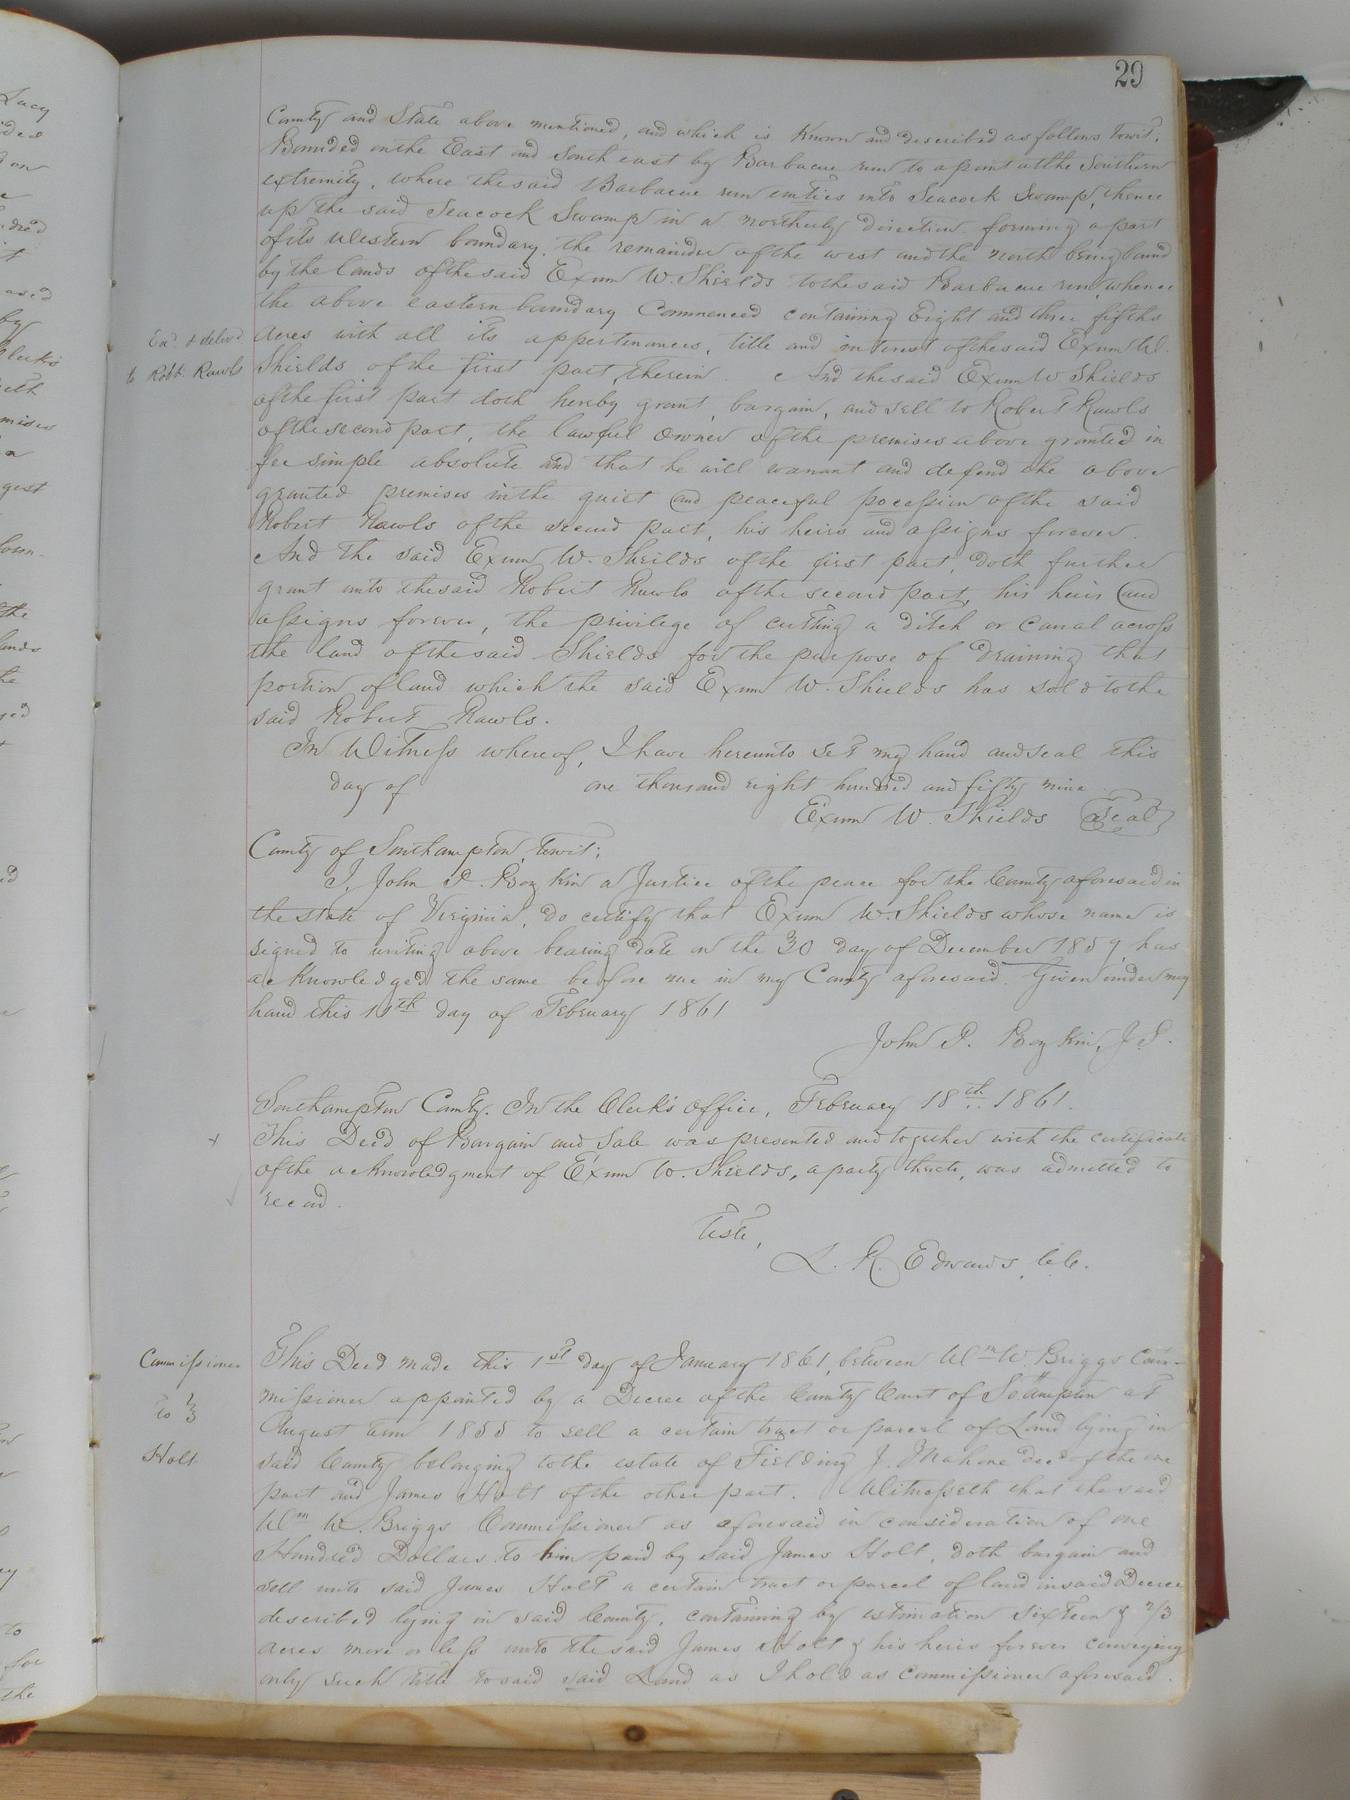 29
County and State above mentioned, and which is Known and described as follows towit;
Bounded on the East and South east by Barbacue run to a point at the Southern
extremity, where the said Barbacue run emties into Seacock Swamp, thence
up the said Seacock Swamp in a northerly direction forming a part
of its Western boundary, the remainder of the west and the north being bound
by the lands of the said Exum W. Shields to the said Barbacue run, whence
the above eastern boundary Commenced containing Eight and three fifths
acres with all its appertenances, title and interest of the said Exum W.
Shields of the first part, therein. And the said Exum W Shields
of the first part doth hereby grant, bargain, and sell to Robert Rawls
of the second part, the lawful owner of the premises above granted in
fee simple absolute and that he will warrant and defend the above
granted premises in the quiet and peaceful pocession of the said
Robert Rawls of the second part, his heirs and assigns forever.
And the said Exum W. Sheilds of the first part, doth further
grant unto the said Robert Rawls of the second part, his heirs and
assigns forever, the privilege of cutting a ditch or canal across
the land of the said Shields for the purpose of draining that
portion of land which the said Exum W. Shields has sold to the
said Robert Rawls.
In Witness whereof, I have hereunto set my hand and seal this
day of one thousand eight hundred and fifty nine
Exum W. Shields Seal
County of Southampton, towit;
I, John P. Boykin a Justice of the peace for the County aforesaid in
the state of Virginia, do certify that Exum W. Shields whose name is
signed to writing above bearing date on the 30 day of December 1859, has
acknowledged the same before me in my County aforesaid. Given under my
hand this 11th day of February 1861
John P. Boykin, J.P.
Southampton County. In the Clerk's office, February 18th 1861.
This Deed of Bargain and Sale was presented and together with the certificate
of the acknowledgment of Exum W. Shields, a party thereto, was admitted to
record.
Teste,
L. R. Edwards C.C.
Exd. & delivd
to Robt. Rawls
Commissioner
To 1/3
Holt
This Deed made this 1st day of January 1861, between Wm W. Briggs Com-
missioner appointed by a Decree of the County Court of So.Hampton at
August term 1855 to sell a certain tract or parcel of Land lying in
said County belonging to the estate of Fielding J. Mahone decd of the one
part and James Holt of the other part. Witnesseth that the said
Wm W. Briggs Commissioner as aforesaid in consideration of one
Hundred Dollars to him paid by said James Holt, doth bargain and
sell unto said James Holt a certain tract or parcel of land in said Decree
described lying in said County, containing by estimation sixteen & 2/3
acres more or less unto the said James Holt & his heirs forever conveying
only such title to said said Land as I hold as commissioner aforesaid.